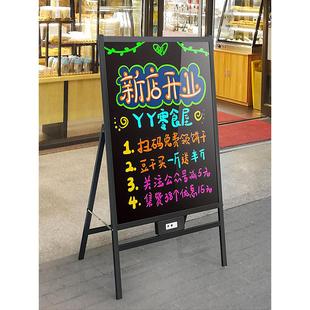 新店开业
丫丫零食屋
1. 扫码免费领饼干
2. 豆干买一斤送半斤
3. 关注公众号减5元
4. 集赞38个优惠15元